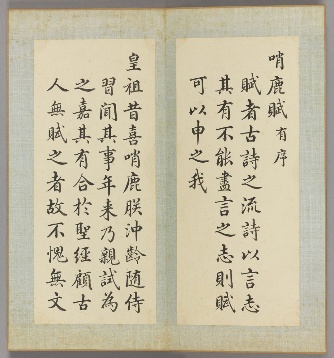 哨鹿賦有序
賦者古詩之流詩以言志
其有不能盡言之志則賦
可以申之我
皇祖昔喜哨鹿朕沖齡随侍
習聞其事年来乃親試為
之嘉其有合於聖經顧古
人無賦之者故不愧無文